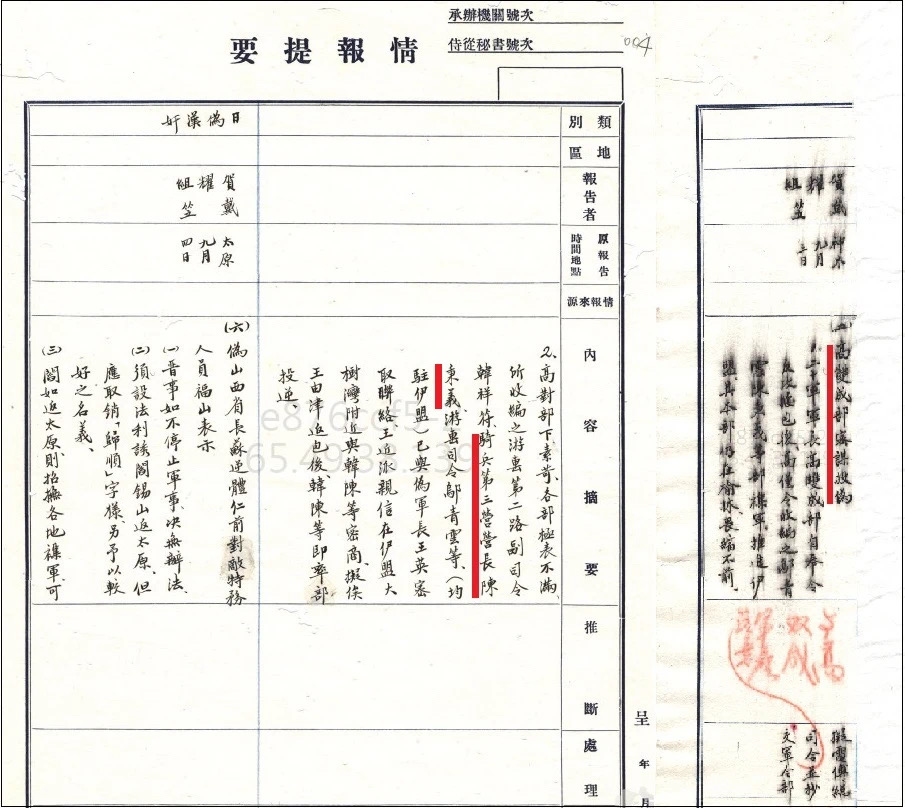 承辦機關號次
侍從秘書號次
004
情報提要
類別
地區
報告者
原報告時間地點
情報來源
內容摘要
推斷
處理
日偽漢奸
賀耀組
戴笠
太原
九月
四日
2、高對部下素苛、各部極表不滿、
所收編之游擊第二路副司令
韓祥符、騎兵第三營營長陳
東義、游擊司令鄔青雲等、(均
駐伊盟)已與偽軍長王英密
取聯絡王近派親信在伊盟大
樹灣附近與韓陳等密商、擬俟
王由津返包後、韓陳等即率部
投逆
(六)偽山西省長蘇逆體仁前對敵特務
人員福山表示
(一)晉事如不停止軍事、決無辦法、
(二)須設法利誘閻錫山返太原、但
應取銷「歸順」字樣、另予以較
好之名義、
(三)閻如返太原則招撫各地雜軍可
呈
年
月
賀耀組
戴笠
神木
九月
三日
高雙成部密謀投偽
軍軍長高雙成部自奉令
反攻綏包後高僅令收編之鄔青
雲陳東義等部雜軍推進伊
盟其本部仍在榆林畏縮不前、
擬電傅
司令並抄
文軍令部